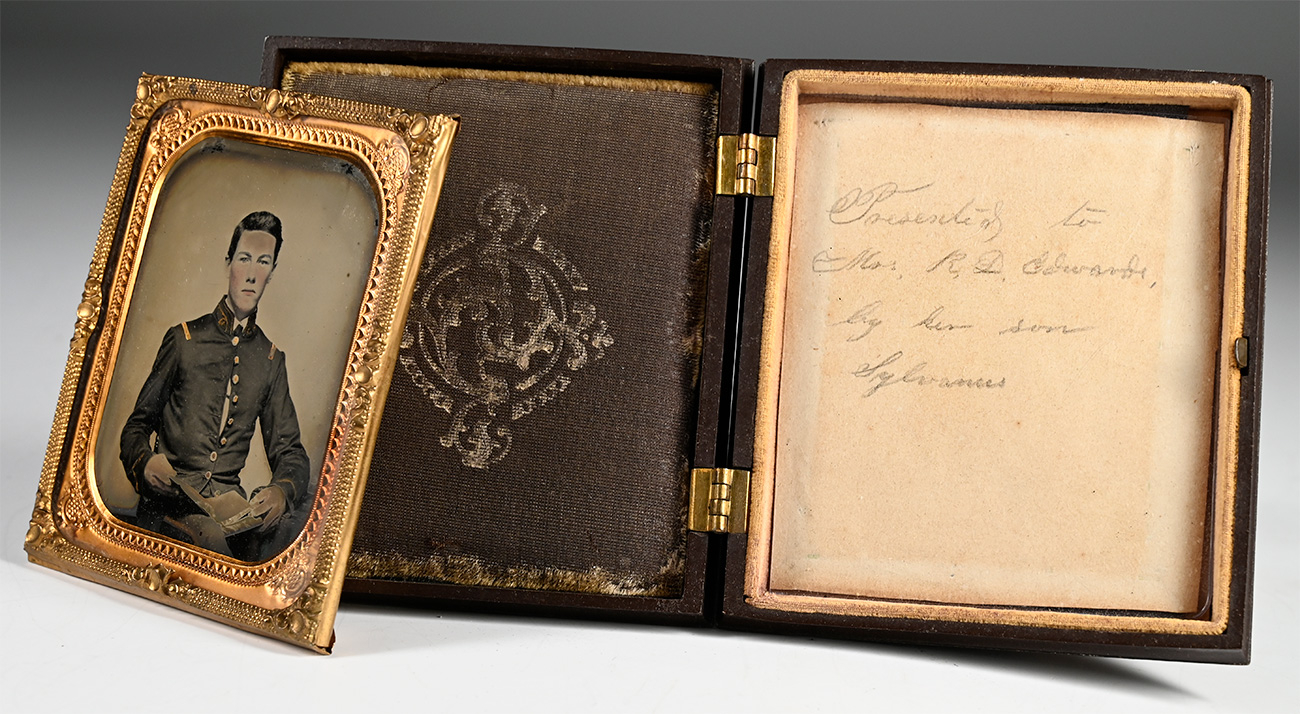 Presented to
Mrs. R. D. Edwards,
by her son
Sylvanus